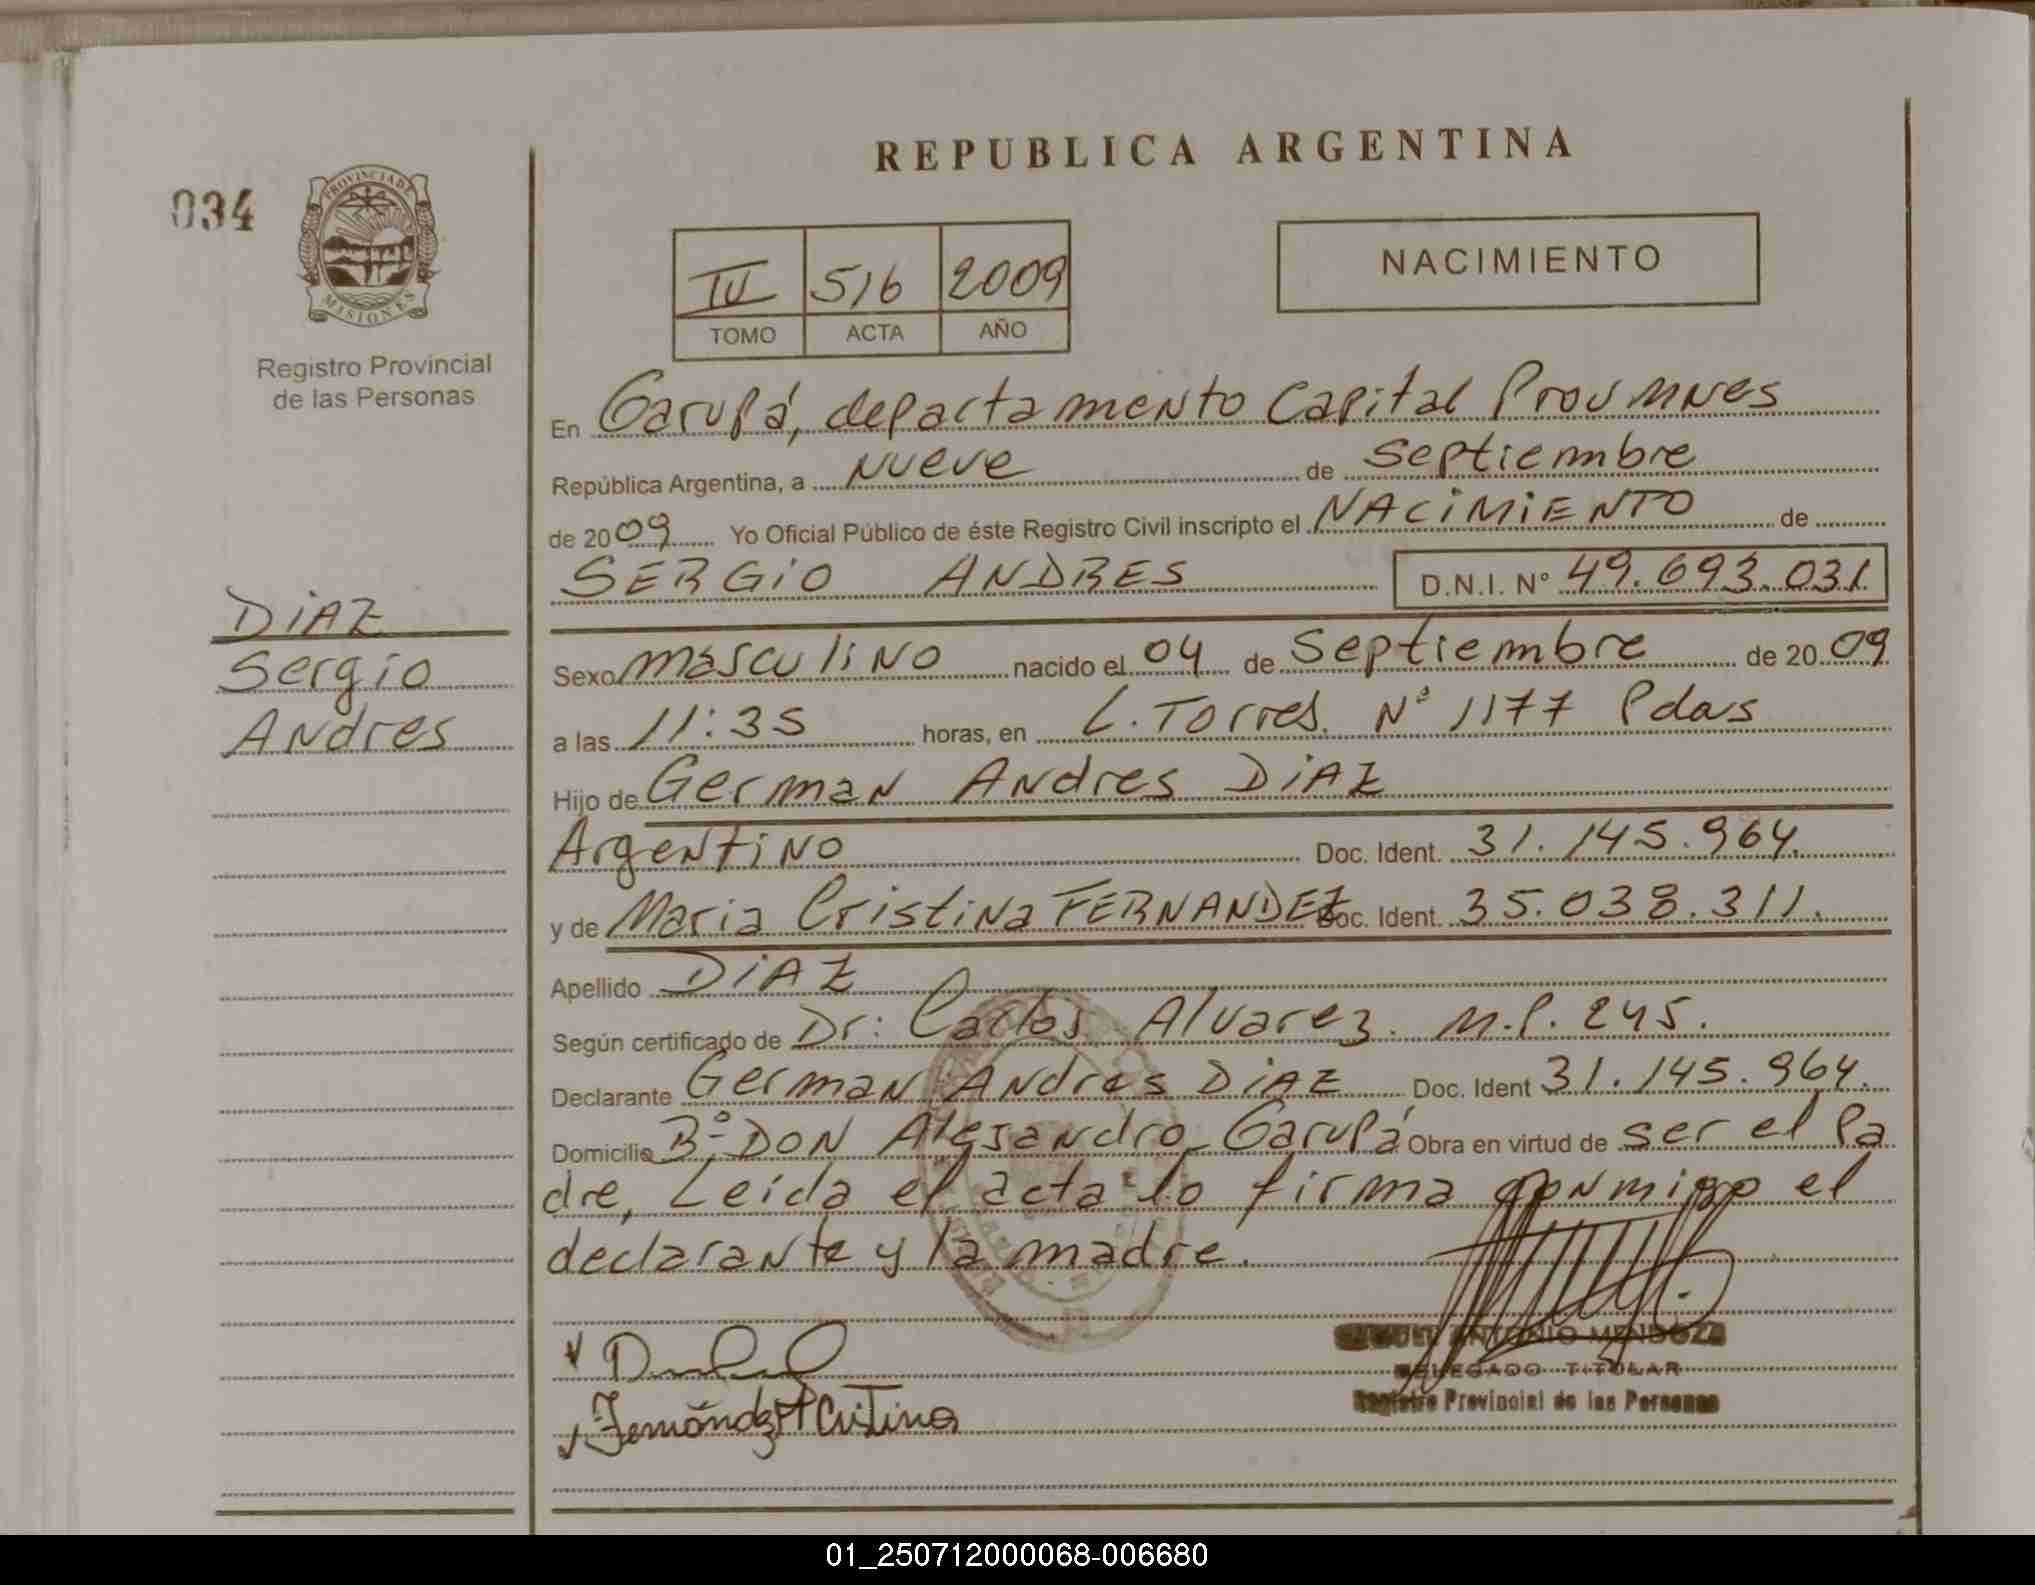 REPUBLICA ARGENTINA
034
PROVINCIA DE
MISIONES
Registro Provincial
de las Personas
NACIMIENTO
516 2009
TOMO ACTA AÑO
En Garupá, departamento Capital Prov Mnes
República Argentina, a Nueve de Septiembre
de 2009 Yo Oficial Público de éste Registro Civil inscripto el NACIMIENTO de
SERGIO ANDRES D.N.I. Nº 49.693.031.
DIAZ
Sergio
Andres
Sexo masculino nacido el 04 de Septiembre de 2009
a las 11:35 horas, en L. Torres. Nº 1177 Pdas
Hijo de German Andres DIAZ
Argentino Doc. Ident. 31.145.964.
y de Maria Cristina FERNANDEZ Doc. Ident. 35.038.311.
Apellido DIAZ
Según certificado de Dr: Carlos Alvarez. M.P. 245.
Declarante German Andres DIAZ Doc. Ident 31.145.964.
Domicilio Bº DON Alejandro Garupá Obra en virtud de ser el Pa
dre, Leida el acta lo firma conmigo el
declarante y la madre.
ANTONIO MENDOZA
DELEGADO TITULAR
Registro Provincial de las Personas
Fernández M Cristina
01_250712000068-006680